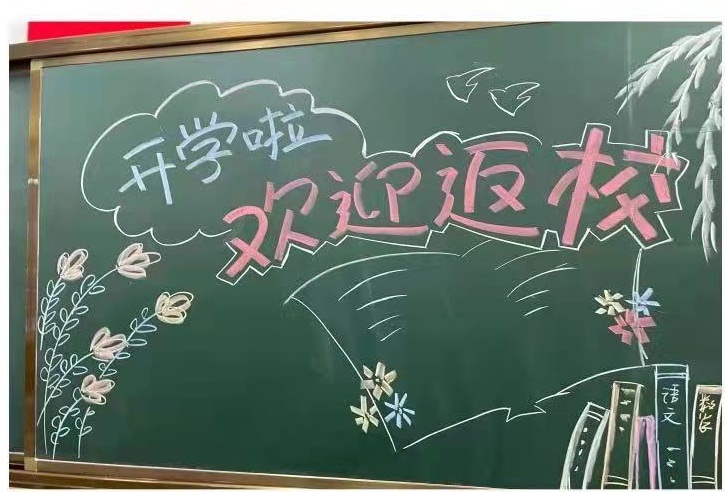 开学啦
欢迎返校
语文
数学